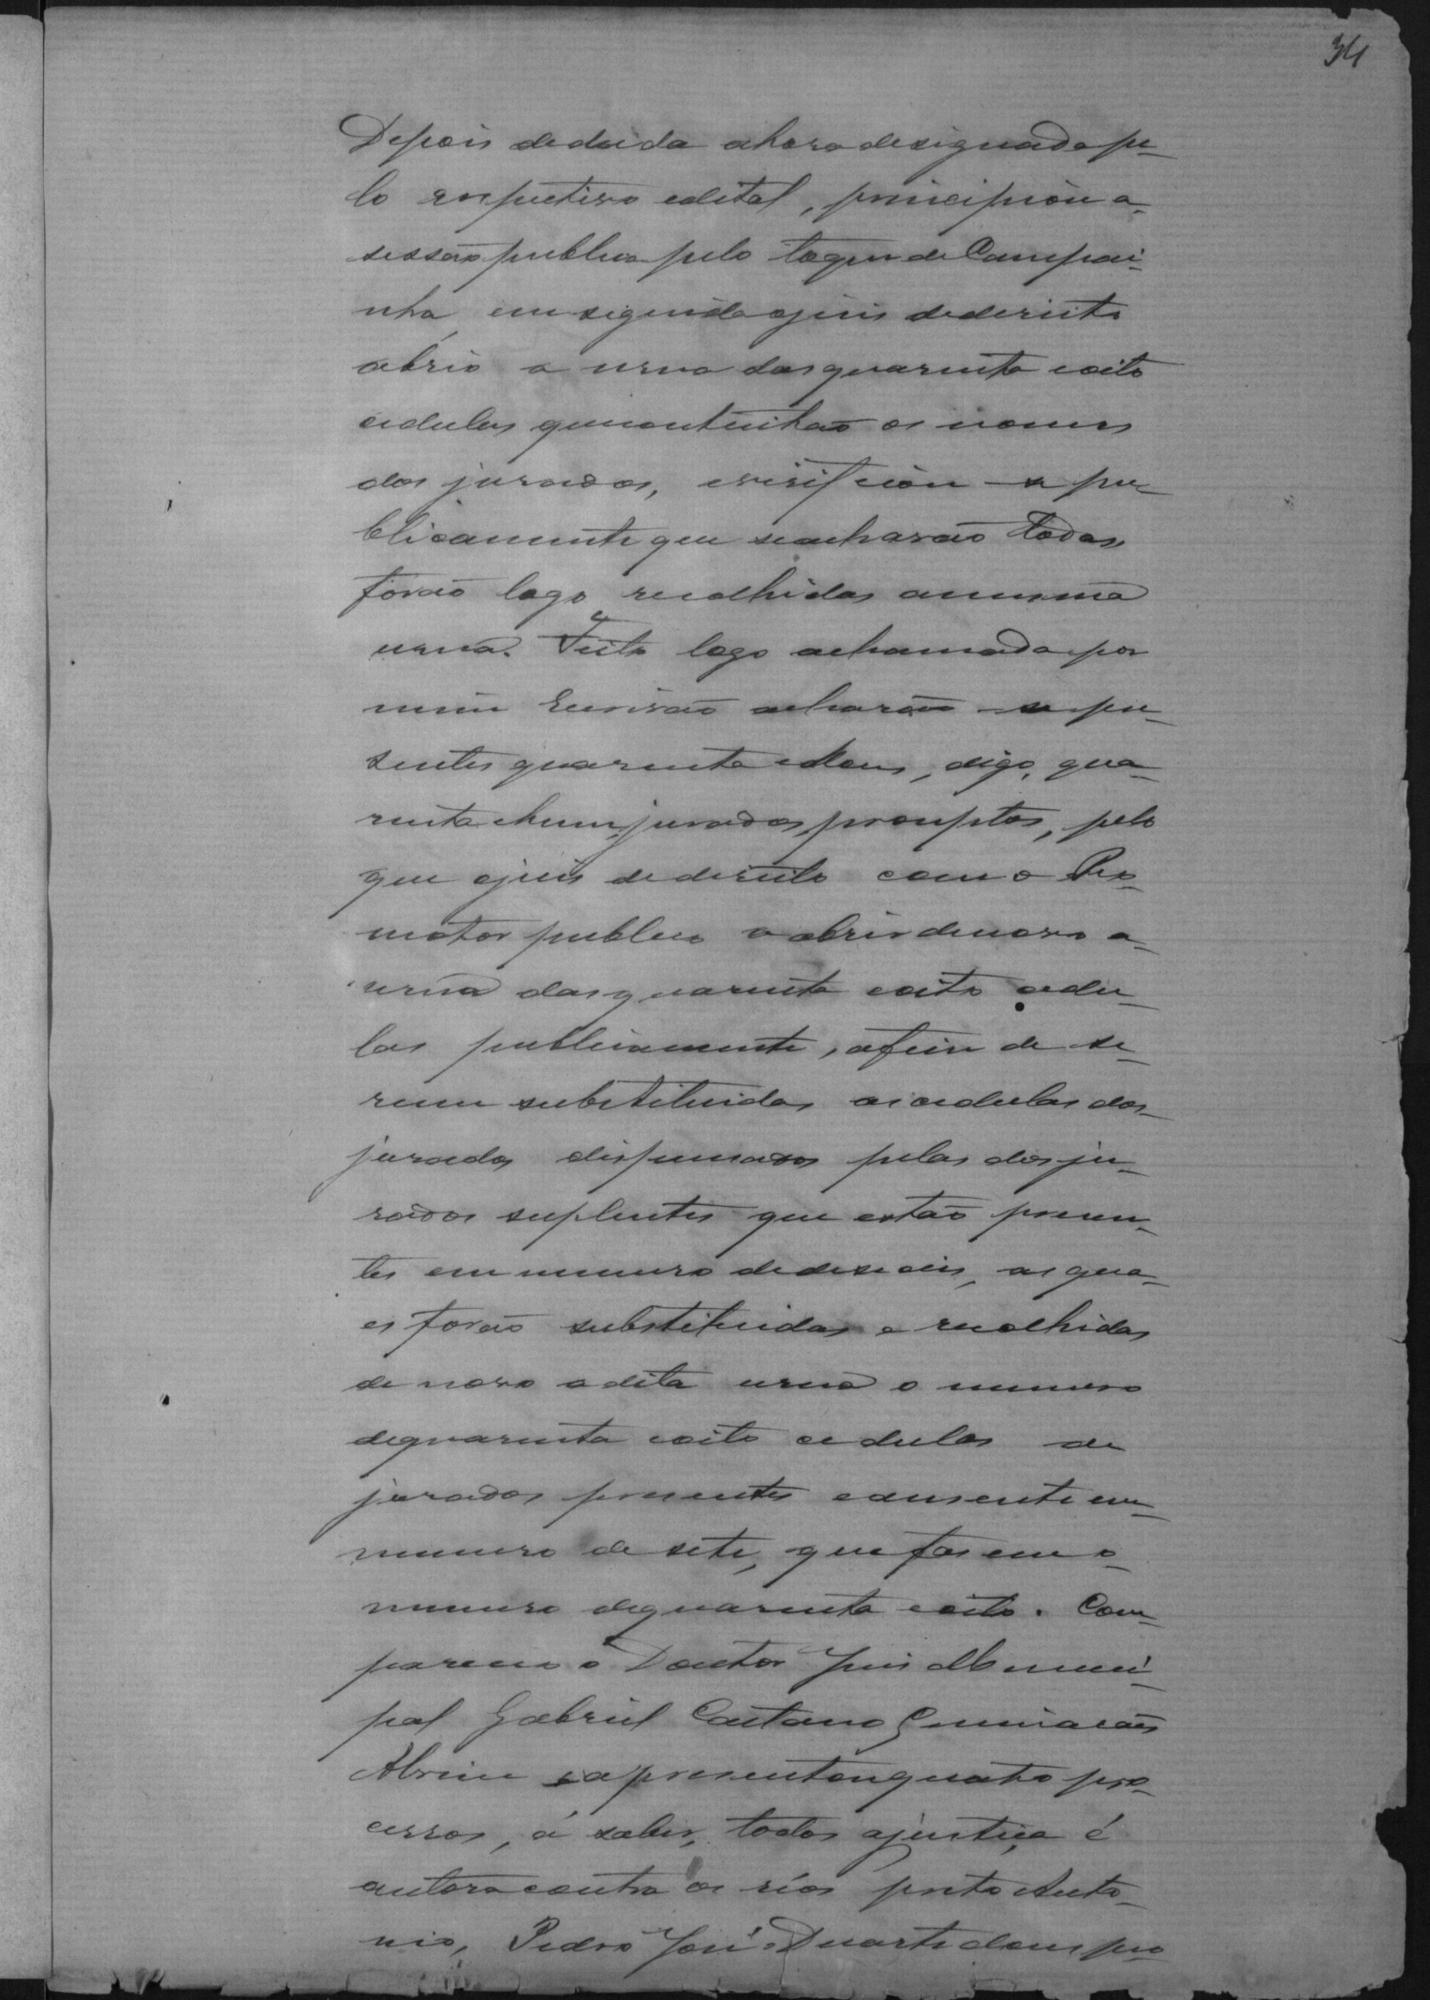 34
Depois de dada a hora designada pe-
lo respectivo edital, principiou a
sessão publica pelo toque de Campai-
nha, em seguida o juis de dereito
abrio a urna das quarenta e oito
cedulas que continhão os nomes
dos jurados, e verificou-se pu-
blicamente que se acharão todas
forão logo recolhidas a mesma
urna. Feito logo a chamada por
mim Escrivão acharão-se pre-
sentes quarenta e dous, digo, qua-
renta e hum jurados promptos, pelo
que o juis de dereito com o Pro-
motor publico o abrir de novo a
urna das quarenta e oito cedu-
las publicamente, afim de se-
rem substituidas as cedulas dos
jurados dispensados pelas dos ju-
rados suplentes que estão presen-
tes em numero de deseseis, as qua-
es forão substituidas e recolhidas
de novo a dita urna o numero
de quarenta e oito cedulas de
jurados presentes e ausente em
numero de sete, que fas em o
numero de quarenta e oito. Com-
pareceo o Doutor Juis Munici-
pal Gabriel Caetano Guimarães
Alvim e apresentou quatro pro-
cessos, á saber, todos a justiça é
autora contra os réos preto Anto-
nio, Pedro José Duarte dous pro